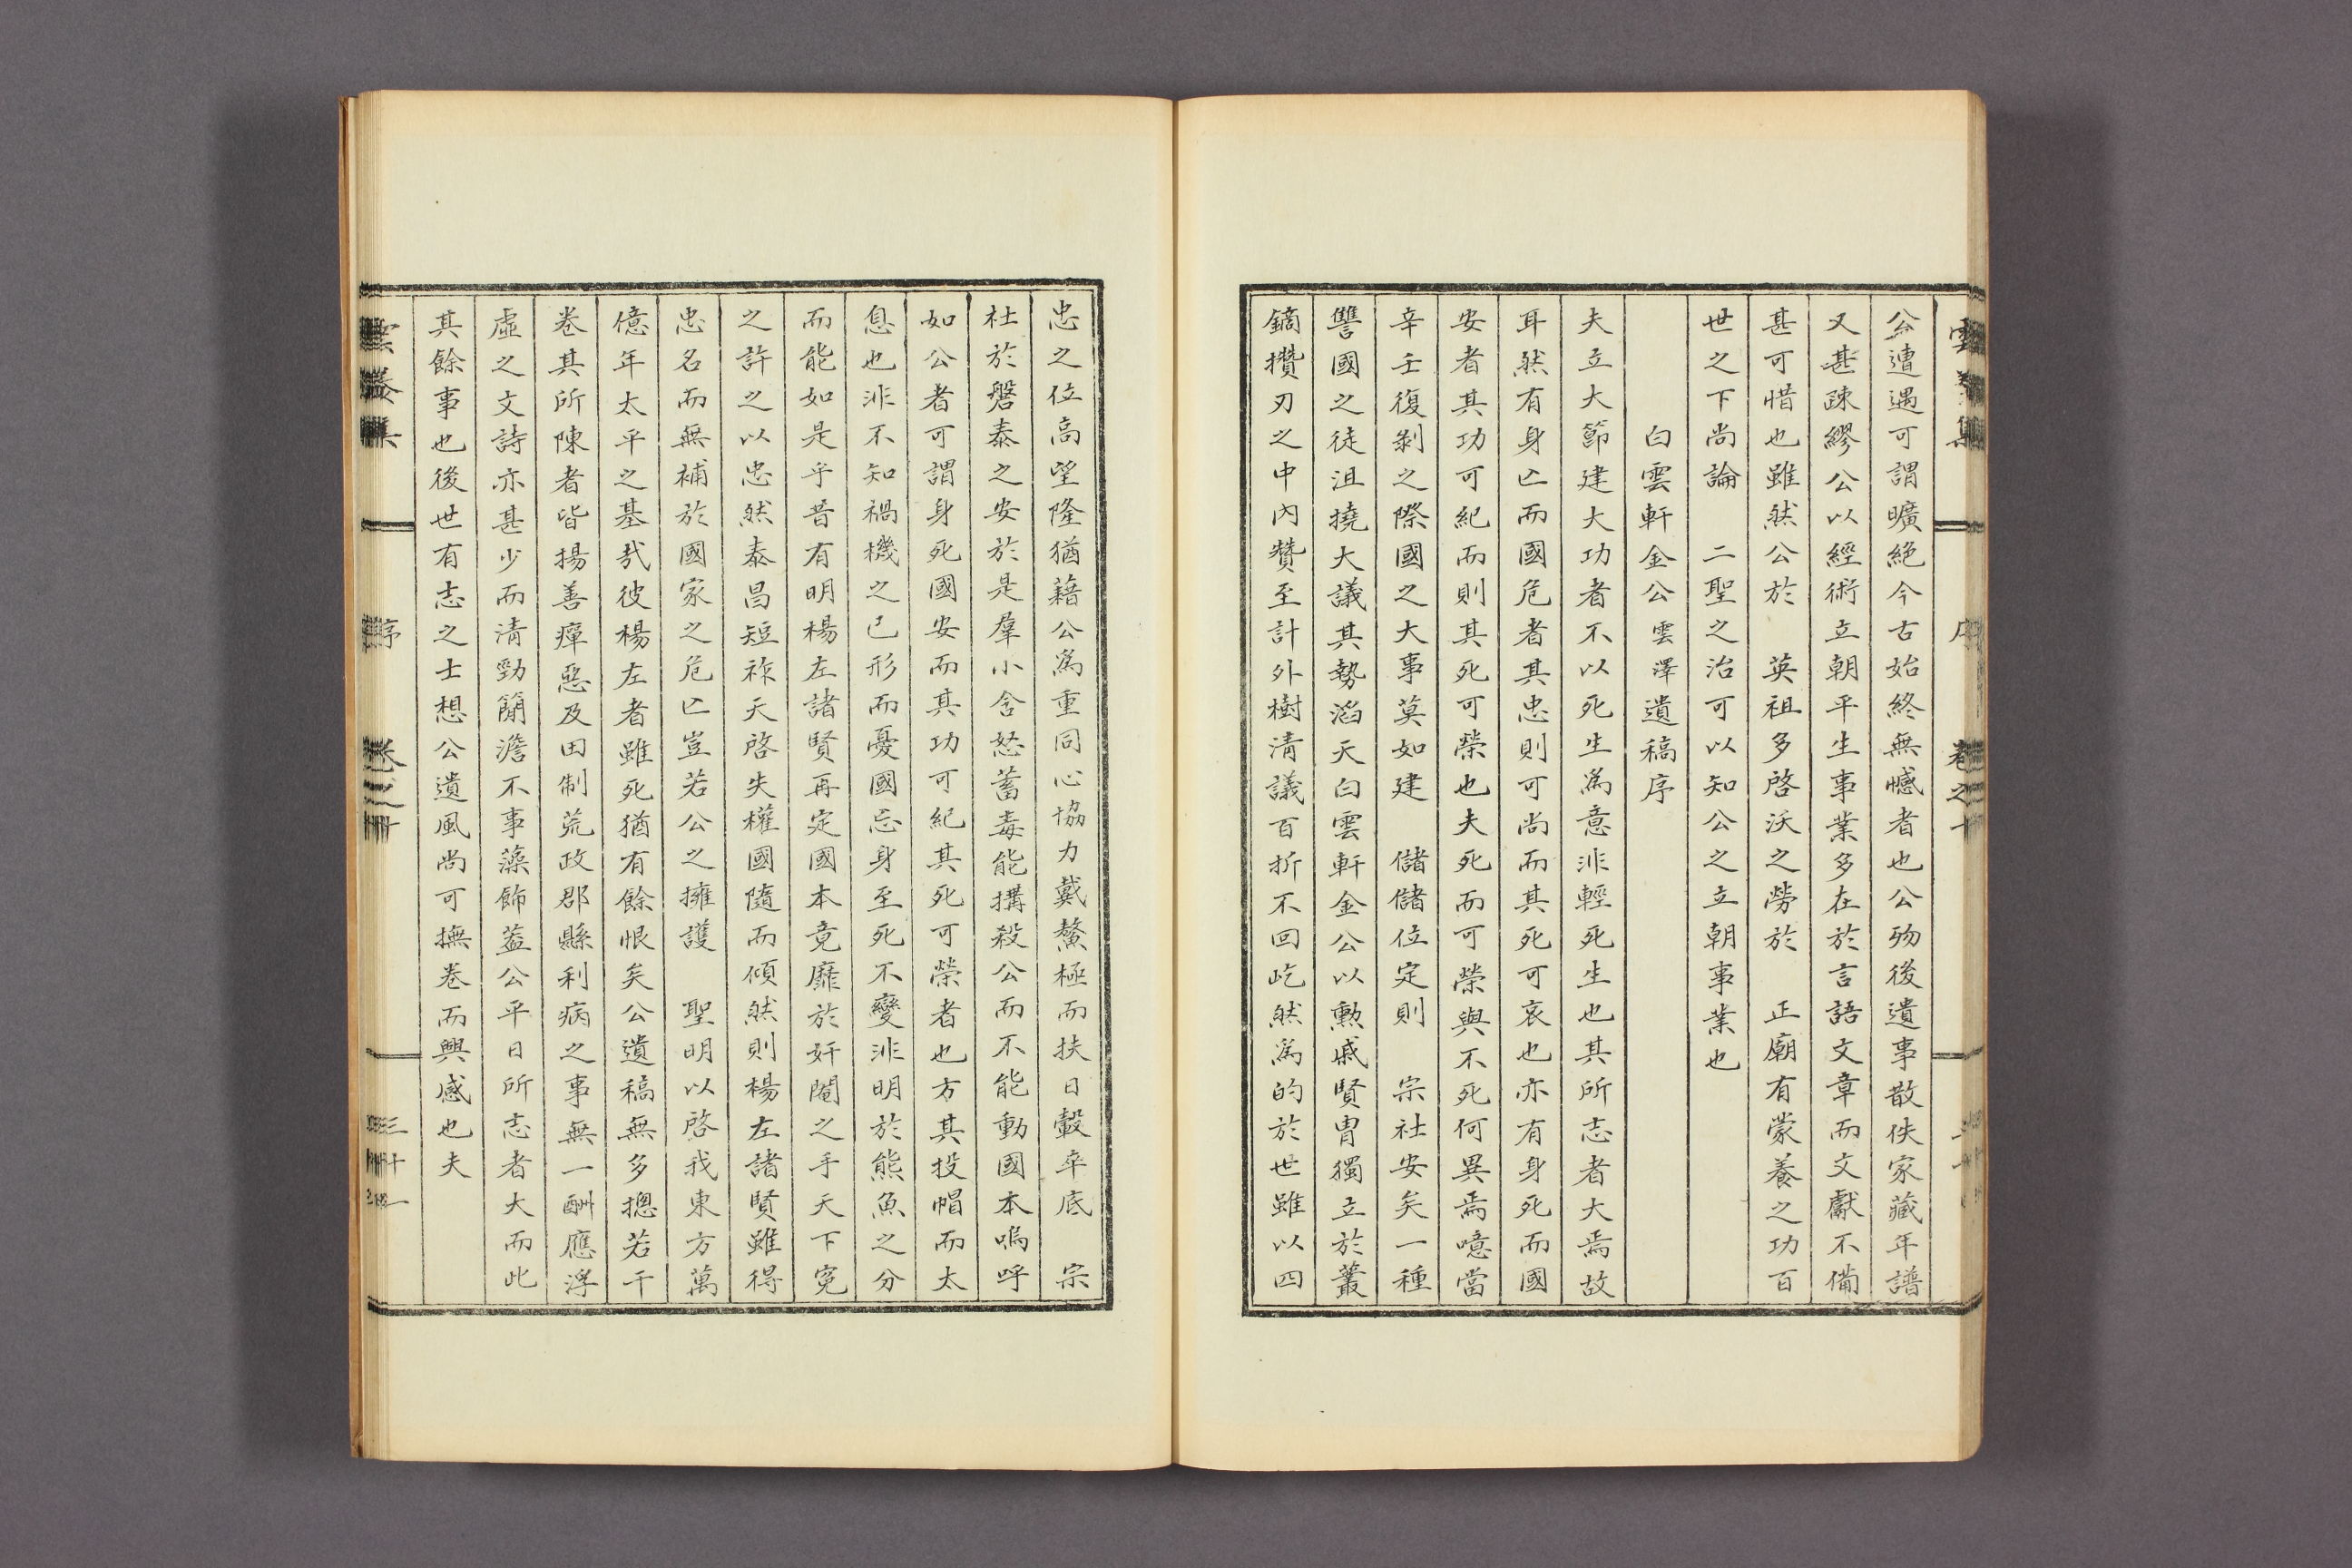 公遭遇可謂曠絶今古始終無憾者也公歿後遺事散佚家藏年譜
又甚疎繆公以經術立朝平生事業多在於言語文章而文獻不備
甚可惜也雖然公於　英祖多啓沃之勞於　正廟有蒙養之功百
世之下尚論　二聖之治可以知公之立朝事業也
白雲軒金公雲澤遺稿序
夫立大節建大功者不以死生爲意非輕死生也其所志者大焉故
耳然有身亡而國危者其忠則可尚而其死可哀也亦有身死而國
安者其功可紀而則其死可榮也夫死而可榮與不死何異焉噫當
辛壬復剝之際國之大事莫如建　儲儲位定則　宗社安矣一種
讐國之徒沮撓大議其勢滔天白雲軒金公以勳戚賢胄獨立於叢
鏑攢刃之中內贊至計外樹淸議百折不回屹然爲的於世雖以四
忠之位高望隆猶藉公爲重同心協力戴鰲極而扶日轂卒底　宗
社於磐泰之安於是羣小含怒蓄毒能搆殺公而不能動國本嗚呼
如公者可謂身死國安而其功可紀其死可榮者也方其投帽而太
息也非不知禍機之已形而憂國忘身至死不變非明於熊魚之分
而能如是乎昔有明楊左諸賢再定國本竟靡於奸閹之手天下冤
之許之以忠然泰昌短祚天啓失權國隨而傾然則楊左諸賢雖得
忠名而無補於國家之危亡豈若公之擁護　聖明以啓我東方萬
億年太平之基哉彼楊左者雖死猶有餘恨矣公遺稿無多摠若干
卷其所陳者皆揚善癉惡及田制荒政郡縣利病之事無一酬應浮
虛之文詩亦甚少而淸勁簡澹不事藻飾蓋公平日所志者大而此
其餘事也後世有志之士想公遺風尚可撫卷而興感也夫
序
三十一